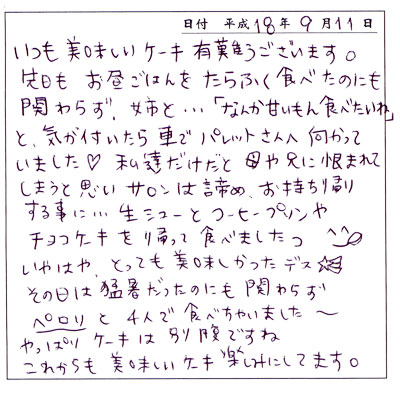 日付 平成18年9月11日
いつも美味しいケーキ有難うございます。
先日も お昼ごはんを たらふく食べたのにも
関わらず、姉と…「なんか甘いもん食べたいね」
と、気が付いたら車で パレットさんへ 向かって
いました♡ 私達だけだと 母や兄に恨まれて
しまうと思い サロンは諦め、お持ち帰り
する事に… 生シューと コーヒープリンや
チョコケーキを 帰って食べましたっ
いやはや、とっても美味しかったデス☆
その日は猛暑だったのにも 関わらず
ペロリと 4人で食べちゃいました〜
やっぱり ケーキは 別腹ですね
これからも 美味しいケーキ楽しみにしてます。